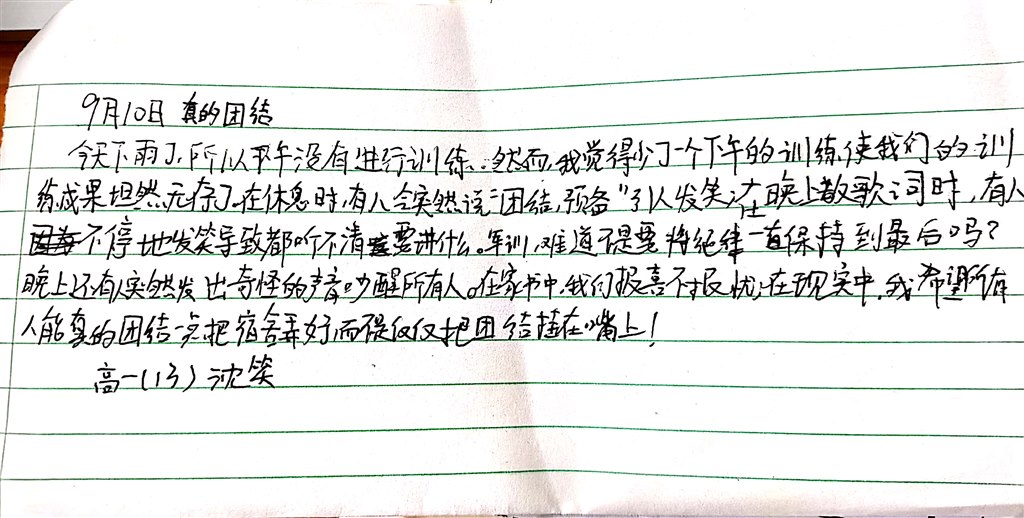 9月10日 真的团结
今天下雨了,所以下午没有进行训练.然而,我觉得少了一个下午的训练使我们的训
练成果坦然无存了。在休息时,有人会突然说“团结,预备”引人发笑,在晚上教歌词时,有人
不停地发笑导致都听不清要讲什么。军训,难道不是要将纪律一直保持到最后吗?
晚上还有人突然发出奇怪的声音吵醒所有人。在家书中,我们报喜不报忧,在现实中,我希望所有
人能真的团结一点把宿舍弄好而不是仅仅把团结挂在嘴上!
高一(13)沈笑